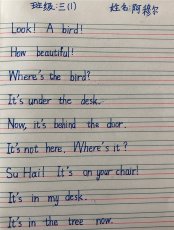 班级:三(1) 姓名:阿穆尔
Look! A bird!
How beautiful!
Where's the bird?
It's under the desk.
Now, it's behind the door.
It's not here, Where's it?
Su Hai! It's on your chair!
It's in my desk.
It's in the tree now.